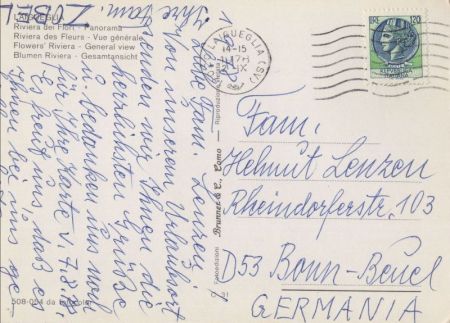 LAIGUEGLIA
Riviera dei Fiori - Panorama
Riviera des Fleurs - Vue générale
Flowers' Riviera - General view
Blumen Riviera - Gesamtansicht
LAIGUEGLIA (SV)
14-15
120
Liebe Fam. Lenzen,
Von unserem Urlaubsort
senden wir Ihnen die
herzlichsten Grüße
u. bedanken uns noch
für Ihre Karte v. 7.8.
Es freut uns, daß es
Ihnen bei uns ge
Ihre
Fam. ZOBEL
Brunner & C., Como
Riproduzione
Fotoedizioni
Fam.
Helmut Lenzen
Rheindorferstr. 103
D53 Bonn-Beuel
GERMANIA
508-014 da